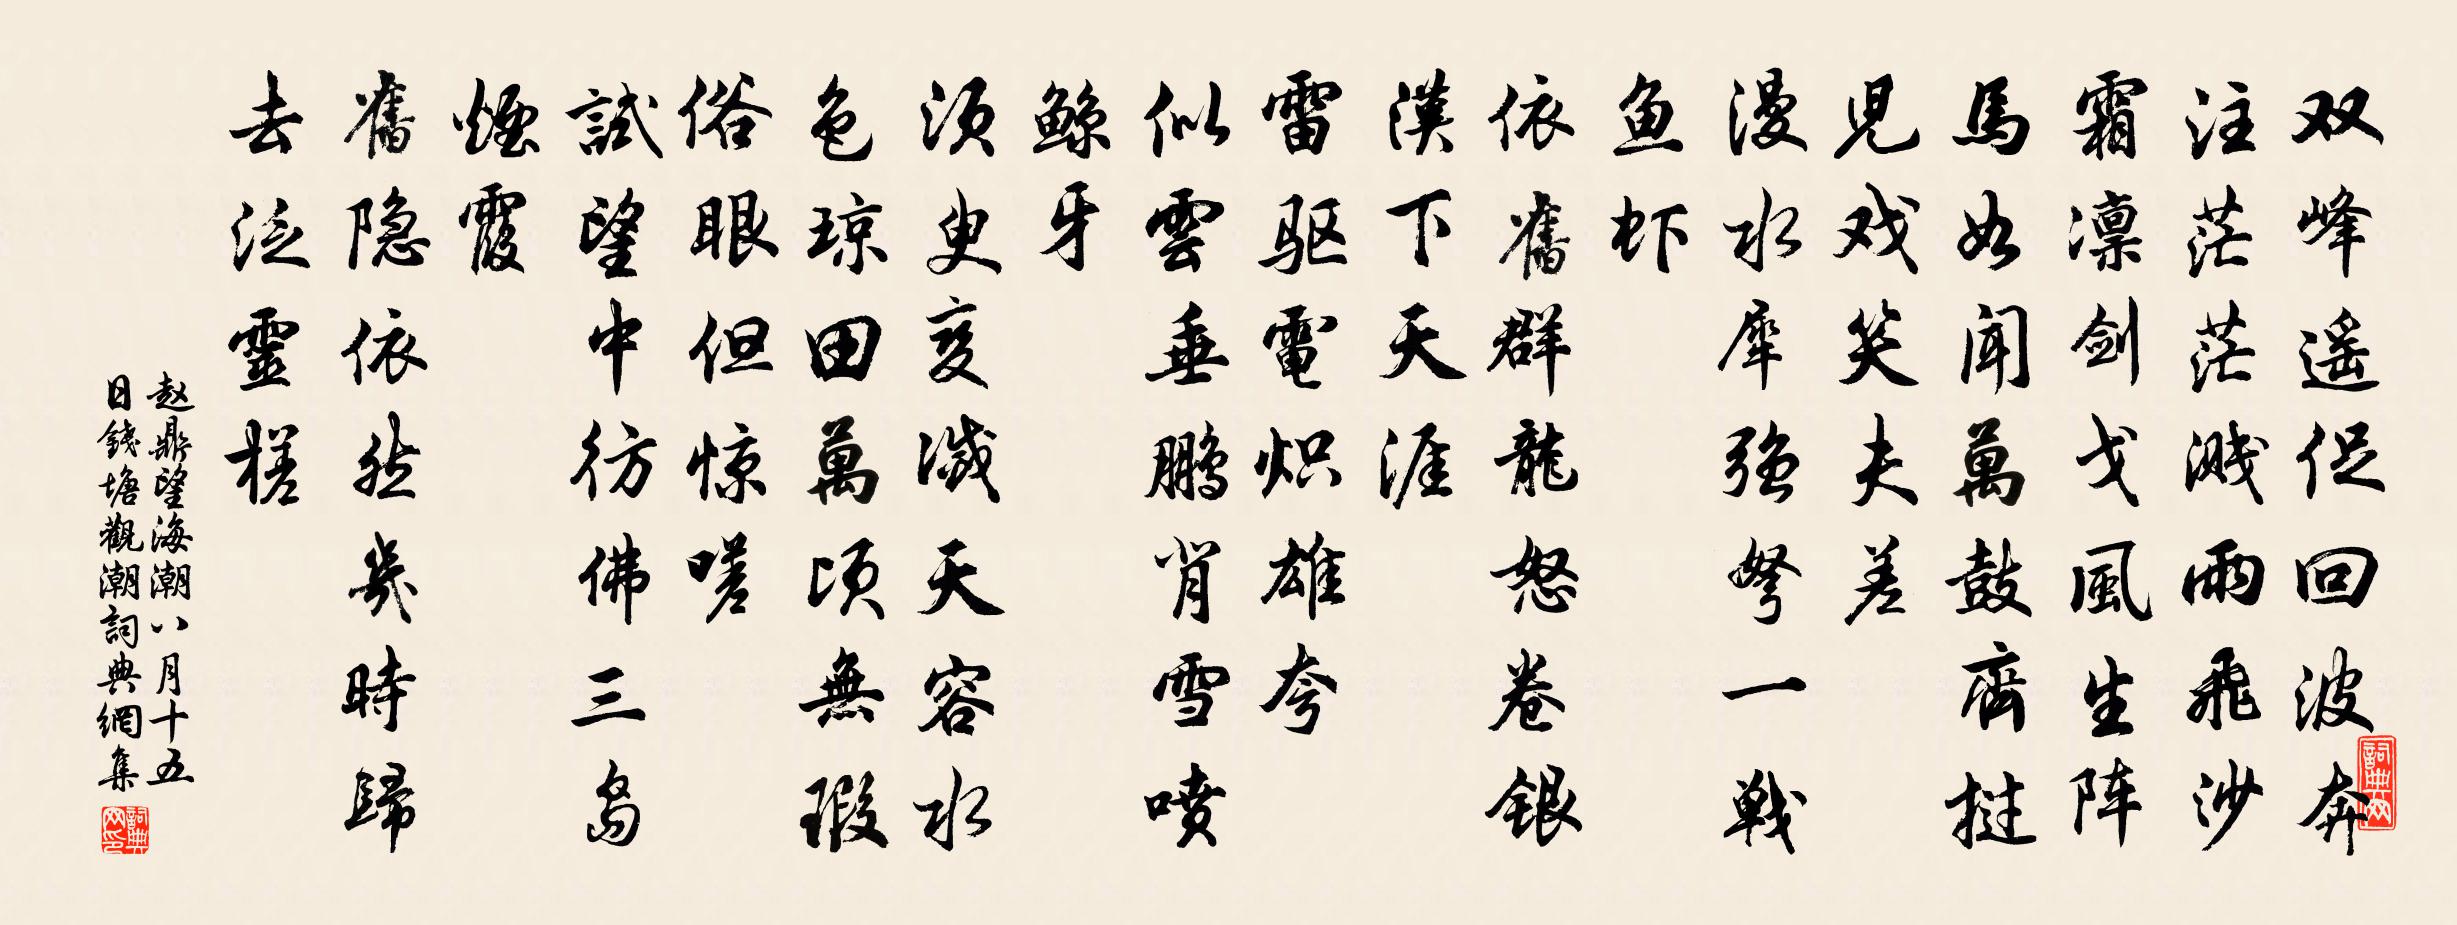 双峰遥促回波奔
注茫茫溅雨飛沙
霜凛剑戈風生阵
馬如闻萬鼓齊挝
児戏笑夫差
漫水犀强弩一戰
鱼虾
依舊群龍怒卷銀
漢下天涯
雷驱電炽雄夸
似雲垂鹏背雪喷
鲸牙
须臾变滅天容水
色琼田萬顷無瑕
俗眼但惊嗟
試望中彷佛三岛
煙霞
舊隐依然幾時歸
去泛靈槎
赵鼎望海潮八月十五
日錢塘觀潮詞典網集
詞典网
詞典网印